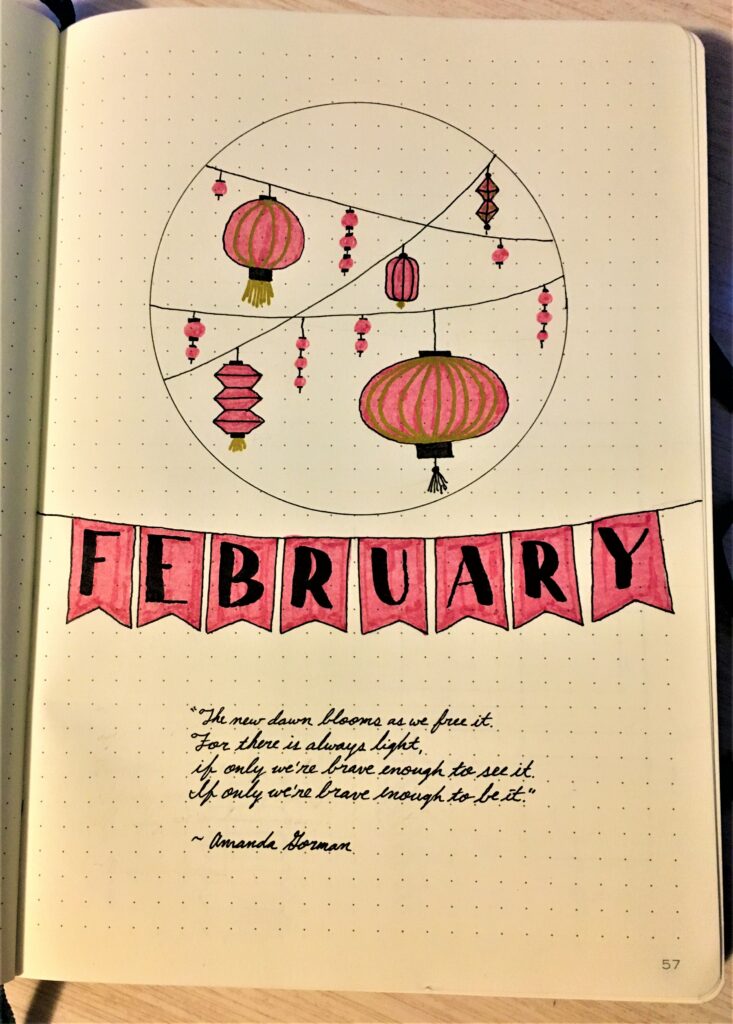 FEBRUARY
"The new dawn blooms as we free it.
For there is always light,
if only we're brave enough to see it.
If only we're brave enough to be it."
~ Amanda Gorman
57